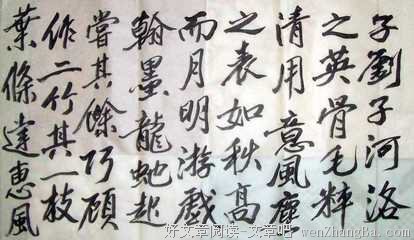 子劉子河洛
之英骨毛粹
清用意風塵
之表如秋高
而月明游戲
翰墨龍蛇起
嘗其餘巧顧
作二竹其一枝
葉條達惠風
好文章阅读-文章吧
wenZhangBa.com